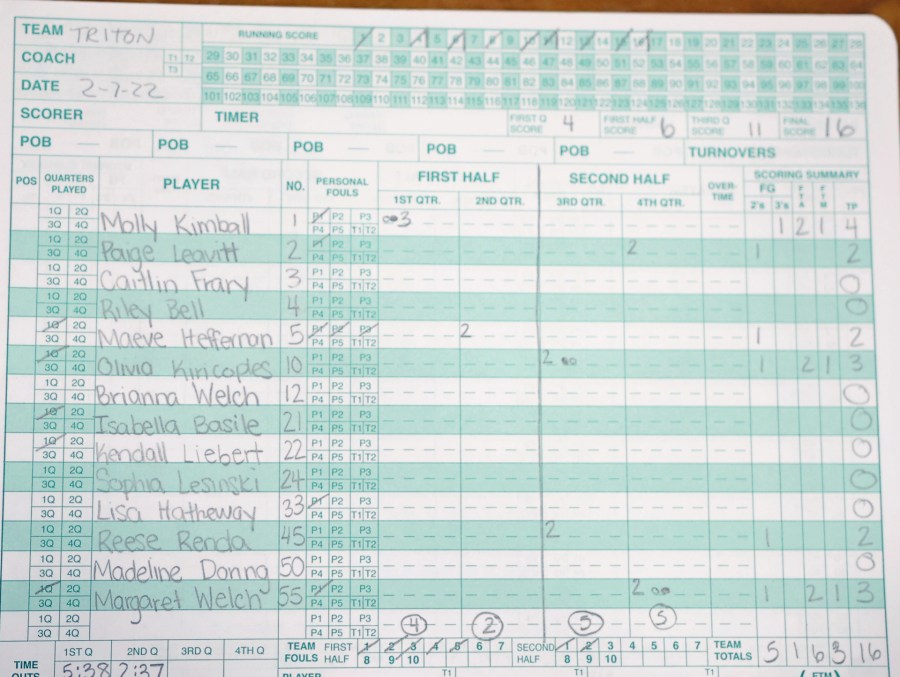 TEAM TRITON RUNNING SCORE 1 2 3 4 5 6 7 8 9 10 11 12 13 14 15 16 17 18 19 20 21 22 23 24 25 26 27 28
COACH T1 T2 29 30 31 32 33 34 35 36 37 38 39 40 41 42 43 44 45 46 47 48 49 50 51 52 53 54 55 56 57 58 59 60 61 62 63 64
T3
DATE 2-7-22 65 66 67 68 69 70 71 72 73 74 75 76 77 78 79 80 81 82 83 84 85 86 87 88 89 90 91 92 93 94 95 96 97 98 99 100
101 102 103 104 105 106 107 108 109 110 111 112 113 114 115 116 117 118 119 120 121 122 123 124 125 126 127 128 129 130 131 132 133 134 135 136
SCORER TIMER FIRST Q SCORE 4 FIRST HALF SCORE 6 THIRD Q SCORE 11 FINAL SCORE 16
POB — POB — POB — POB — POB — TURNOVERS
POS QUARTERS PLAYED PLAYER NO. PERSONAL FOULS FIRST HALF SECOND HALF OVER-TIME SCORING SUMMARY
1ST QTR. 2ND QTR. 3RD QTR. 4TH QTR. FG 2's 3's FTA FTM TP
1Q 2Q Molly Kimball 1 P1 P2 P3 3 1 2 1 4
3Q 4Q P4 P5 T1 T2
1Q 2Q Paige Leavitt 2 P1 P2 P3 2 1 2
3Q 4Q P4 P5 T1 T2
1Q 2Q Caitlin Frary 3 P1 P2 P3 0
3Q 4Q P4 P5 T1 T2
1Q 2Q Riley Bell 4 P1 P2 P3 0
3Q 4Q P4 P5 T1 T2
1Q 2Q Maeve Heffernon 5 P1 P2 P3 2 1 2
3Q 4Q P4 P5 T1 T2
1Q 2Q Olivia Kincaples 10 P1 P2 P3 2 1 2 1 3
3Q 4Q P4 P5 T1 T2
1Q 2Q Brianna Welch 12 P1 P2 P3 0
3Q 4Q P4 P5 T1 T2
1Q 2Q Isabella Basile 21 P1 P2 P3 0
3Q 4Q P4 P5 T1 T2
1Q 2Q Kendall Liebert 22 P1 P2 P3 0
3Q 4Q P4 P5 T1 T2
1Q 2Q Sophia Lesinski 24 P1 P2 P3 0
3Q 4Q P4 P5 T1 T2
1Q 2Q Lisa Hatheway 33 P1 P2 P3 0
3Q 4Q P4 P5 T1 T2
1Q 2Q Reese Renda 45 P1 P2 P3 2 1 2
3Q 4Q P4 P5 T1 T2
1Q 2Q Madeline Donna 50 P1 P2 P3 0
3Q 4Q P4 P5 T1 T2
1Q 2Q Margaret Welch 55 P1 P2 P3 2 1 2 1 3
3Q 4Q P4 P5 T1 T2
1Q 2Q P1 P2 P3 4 2 5 5
3Q 4Q P4 P5 T1 T2
1ST Q 2ND Q 3RD Q 4TH Q TEAM FOULS FIRST HALF 1 2 3 4 5 6 7 SECOND HALF 1 2 3 4 5 6 7 TEAM TOTALS 5 1 6 3 16
8 9 10 8 9 10
TIME OUTS 5:38 2:37 PLAYER T1 T1 T1 (FTM)